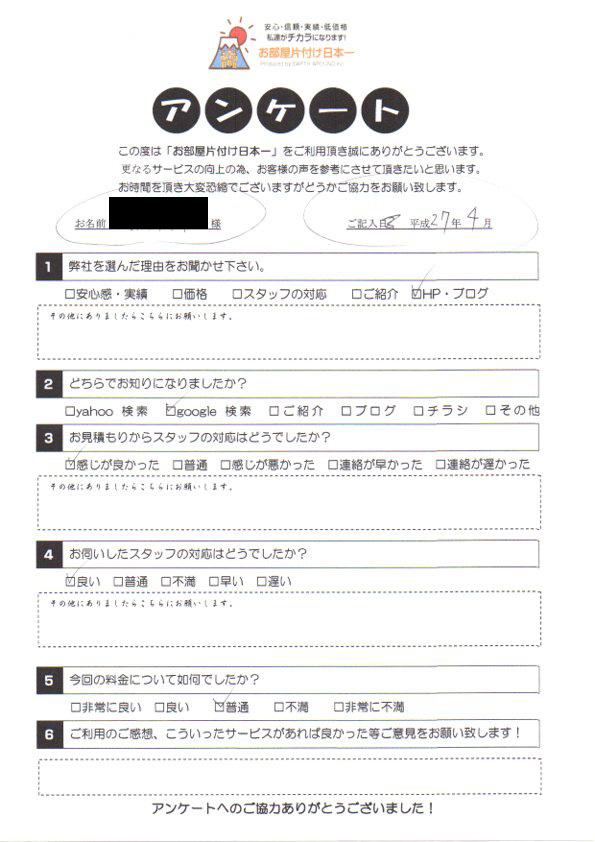 安心・信頼・実績・低価格
私達がチカラになります!
お部屋片付け日本一
Produced by EARTH AROUND inc.
アンケート
この度は「お部屋片付け日本一」をご利用頂き誠にありがとうございます。
更なるサービスの向上の為、お客様の声を参考にさせて頂きたいと思います。
お時間を頂き大変恐縮でございますがどうかご協力をお願い致します。
お名前 様 ご記入日 平成27年 4月
1 弊社を選んだ理由をお聞かせ下さい。
□安心感・実績 □価格 □スタッフの対応 □ご紹介 ☑HP・ブログ
その他にありましたらこちらにお願いします。
2 どちらでお知りになりましたか?
□yahoo 検索 ☑google 検索 □ご紹介 □ブログ □チラシ □その他
3 お見積もりからスタッフの対応はどうでしたか?
☑感じが良かった □普通 □感じが悪かった □連絡が早かった □連絡が遅かった
その他にありましたらこちらにお願いします。
4 お伺いしたスタッフの対応はどうでしたか?
☑良い □普通 □不満 □早い □遅い
その他にありましたらこちらにお願いします。
5 今回の料金について如何でしたか?
□非常に良い □良い ☑普通 □不満 □非常に不満
6 ご利用のご感想、こういったサービスがあれば良かった等ご意見をお願い致します!
アンケートへのご協力ありがとうございました!